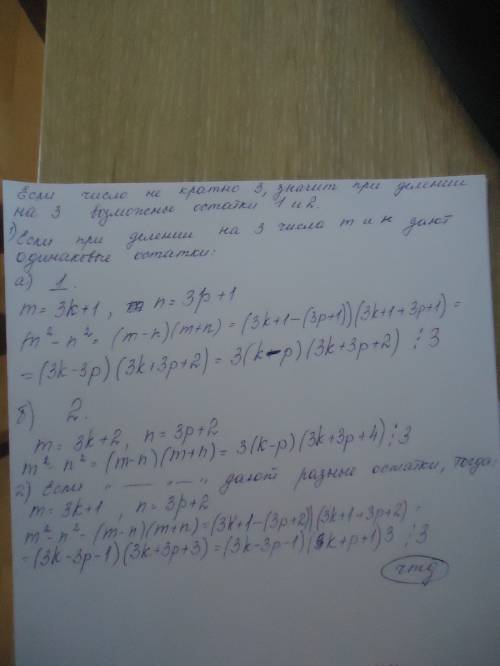 Если число не кратно 3, значит при делении
на 3 возможны остатки 1 и 2.
1) Если при делении на 3 числа m и n дают
одинаковые остатки:
а) 1.
m = 3k+1, n = 3p+1
m² - n² = (m-n)(m+n) = (3k+1-(3p+1))(3k+1+3p+1) =
= (3k-3p)(3k+3p+2) = 3(k-p)(3k+3p+2) ⋮ 3
б) 2.
m = 3k+2, n = 3p+2
m² - n² = (m-n)(m+n) = 3(k-p)(3k+3p+4) ⋮ 3
2) Если " — " — " дают разные остатки, тогда:
m = 3k+1, n = 3p+2
m² - n² = (m-n)(m+n) = (3k+1-(3p+2))(3k+1+3p+2) =
= (3k-3p-1)(3k+3p+3) = (3k-3p-1)(k+p+1)3 ⋮ 3
чтд